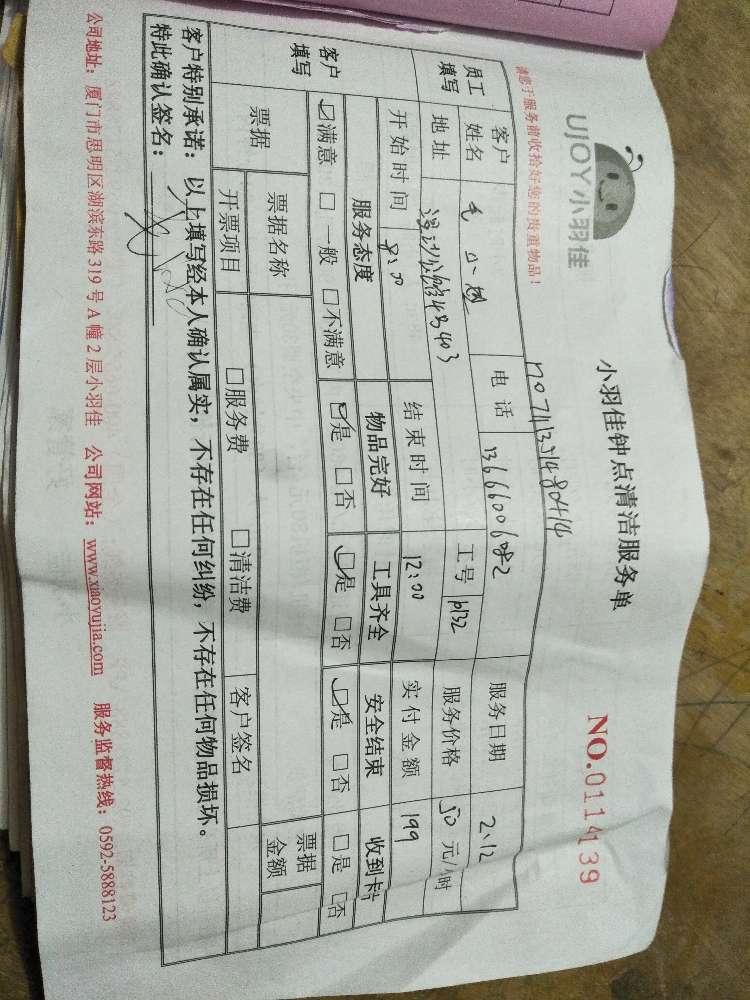 UJOY小羽佳
小羽佳钟点清洁服务单
NO.0114139
请您于服务前收拾好您的贵重物品!
员工填写 客户姓名 电话 13666006082 服务日期 2.12
地址 483403 工号 p132 服务价格 50 元/时
开始时间 8:00 结束时间 12:00 实付金额 199
客户填写 服务态度 物品完好 工具齐全 安全结束 收到卡片
☑满意 □一般 □不满意 ☑是 □否 ☑是 □否 ☑是 □否 □是 □否
票据 票据名称 □服务费 □清洁费 票据金额
开票项目 客户签名
客户特别承诺:以上填写经本人确认属实,不存在任何纠纷,不存在任何物品损坏。
特此确认签名:
公司地址:厦门市思明区湖滨东路 319 号 A 幢 2 层小羽佳 公司网站:www.xiaoyujia.com 服务监督热线:0592-5888123